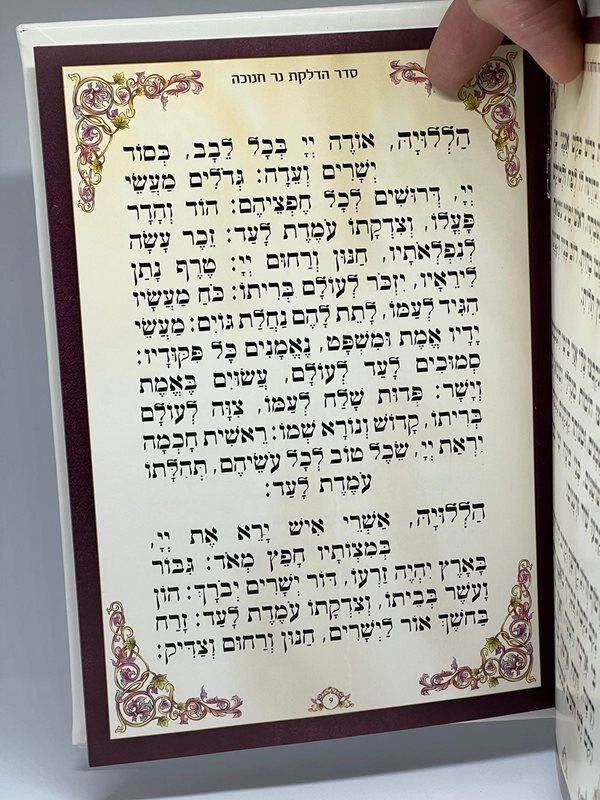 סדר הדלקת נר חנוכה
הַלְלוּיָהּ, אוֹדֶה יְיָ בְּכָל לֵבָב, בְּסוֹד
יְשָׁרִים וְעֵדָה: גְּדֹלִים מַעֲשֵׂי
יְיָ, דְּרוּשִׁים לְכָל חֶפְצֵיהֶם: הוֹד וְהָדָר
פָּעֳלוֹ, וְצִדְקָתוֹ עֹמֶדֶת לָעַד: זֵכֶר עָשָׂה
לְנִפְלְאֹתָיו, חַנּוּן וְרַחוּם יְיָ: טֶרֶף נָתַן
לִירֵאָיו, יִזְכֹּר לְעוֹלָם בְּרִיתוֹ: כֹּחַ מַעֲשָׂיו
הִגִּיד לְעַמּוֹ, לָתֵת לָהֶם נַחֲלַת גּוֹיִם: מַעֲשֵׂי
יָדָיו אֱמֶת וּמִשְׁפָּט, נֶאֱמָנִים כָּל פִּקּוּדָיו:
סְמוּכִים לָעַד לְעוֹלָם, עֲשׂוּיִם בֶּאֱמֶת
וְיָשָׁר: פְּדוּת שָׁלַח לְעַמּוֹ, צִוָּה לְעוֹלָם
בְּרִיתוֹ, קָדוֹשׁ וְנוֹרָא שְׁמוֹ: רֵאשִׁית חָכְמָה
יִרְאַת יְיָ, שֵׂכֶל טוֹב לְכָל עֹשֵׂיהֶם, תְּהִלָּתוֹ
עֹמֶדֶת לָעַד:
הַלְלוּיָהּ, אַשְׁרֵי אִישׁ יָרֵא אֶת יְיָ,
בְּמִצְוֹתָיו חָפֵץ מְאֹד: גִּבּוֹר
בָּאָרֶץ יִהְיֶה זַרְעוֹ, דּוֹר יְשָׁרִים יְבֹרָךְ: הוֹן
וָעֹשֶׁר בְּבֵיתוֹ, וְצִדְקָתוֹ עֹמֶדֶת לָעַד: זָרַח
בַּחֹשֶׁךְ אוֹר לַיְשָׁרִים, חַנּוּן וְרַחוּם וְצַדִּיק:
9